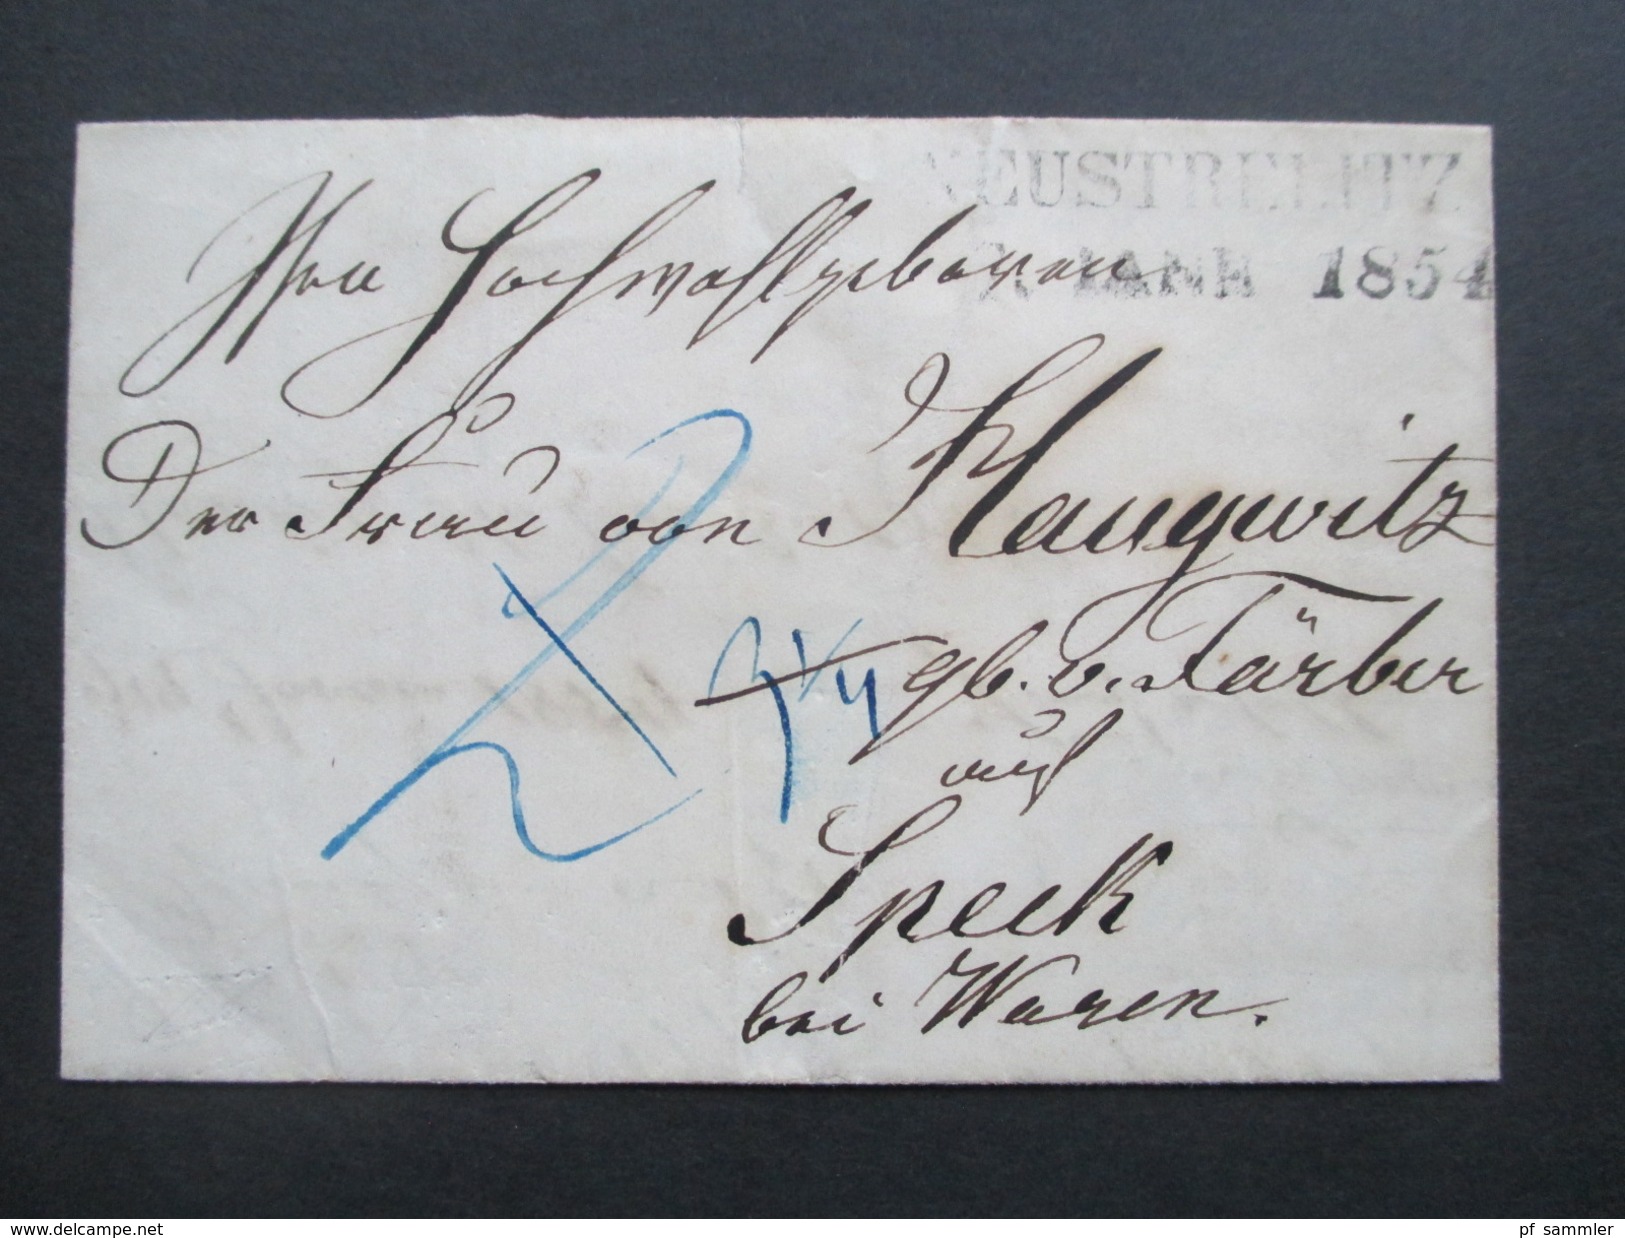 NEUSTRELITZ
JANR 1854
Hochwohlgeboren
Der Frau von Haugwitz
3 1/4
gb. v. Färber
auf
Speck
bei Waren.
delcampe.net
pf_sammler